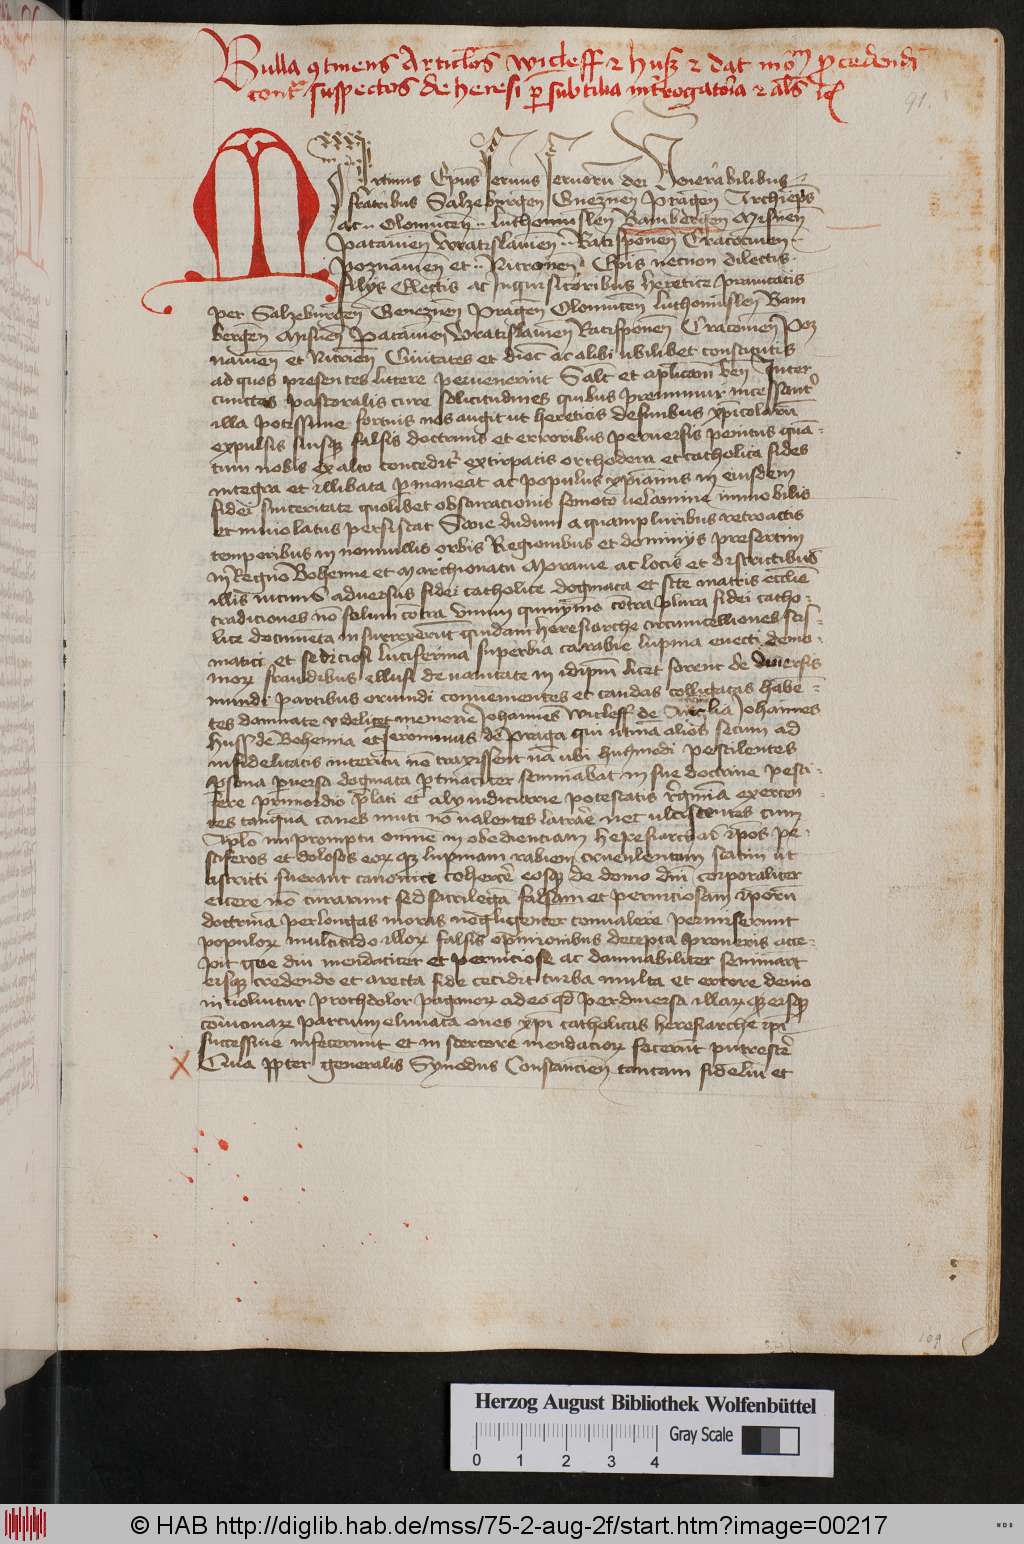 Bulla 9tinens Articlos wicleff et huß et dat modum pcedendi
contra suspectos de heresi p subtilia introgatoria et als etc
91.
Martinus Epus servus servorum dei Venerabilibus
fratribus Salzeburgen Gneznen Pragen Archiepis
ac Olomucen luthomuslen Bambergen Misnen
Patavien Wratislavien Ratisponen Cracovien
Poznanien et Nitrien Epis necnon dilectis
filys Electis ac Inquisitoribus heretice pravitatis
per Salzeburgen Gneznen Pragen Olomucen luthomuslen Bam
bergen Misnen Patavien Wratislavien Ratisponen Cracovien Poz
nanien et Nitrien Civitates et dioc ac alibi ubilibet constitutis
ad quos presentes littere pervenerint Salt et aplicam ben Inter
cunctas pastoralis cure solicitudines quibus premimur incessanter
illa potissime fortius nos angit ut hereticis de finibus xpicolarum
expulsis suisque falsis doctrinis et erroribus perversis penitus quan
tum nobis ex alto conceditur extirpatis orthodoxa et catholica fides
integra et illibata pmaneat ac populus xpianus in eiusdem
fidei sinceritate quolibet obscurationis semoto velamine immobilis
et inviolatus persistat Sane dudum a quampluribus retroactis
temporibus in nonnullis orbis Regionibus et dominys presertim
in Regno Bohemie et Marchionatu Moravie ac locis et districtibus
illis vicinis adversus fidei catholice dogmata et scte matris ecclie
traditiones no solum contra unum quinymmo contra plura fidei catho
lice documeta insurrexerut quidam heresiarche circumcelliones scis
matici et sediciosi luciferina superbia ca rabie lupina evecti demo
norum fraudibus illusi de vanitate in idipm licet forent de diversis
mundi partibus oriundi convenientes et caudas colligatas haben
tes damnate videlicet memorie Johannes Wicleff de Anglia Johannes
Huss de Bohemia et Jeronimus de Praga qui utina alios secum ad
infidelitatis interitu no traxissent na ubi huiusmodi pestilentes
psona pversa dogmata ptinaciter seminabat in sue doctrine pesti
fere primordio plati et aly iudiciarie potestatis regimia exercen
tes tanquam canes muti no valentes latrare nec ulciscentes cum
Aplo in promptu omne inobedientiam heresiarchas ipos pe
stiferos et dolosos eorum que lupinam rabiem truculentam statim ut
astricti fuerant canonice cohercere eosque de domo dni corporaliter
eicere no curarunt sed sacrilega falsam et perniciosam ipsoru
doctrina per longas moras negligenter convalere permiserunt
populorum multitudo illorum falsis opinionibus decepta pro veris acce
pit que diu mendaciter et perniciose ac damnabiliter seminarat
eisque credendo et a recta fide cecidit turba multa et errore devio
involvitur prochdolor paganorum adeo qd per diversa illarum que eisque
convicinarum partium climata oves xpi catholicas heresiarche ipsi
successive infecerunt et in stercore mendatiorum fecerut putrescere
Qua ppter generalis Synodus Constancien tantam fideliu et
109
Herzog August Bibliothek Wolfenbüttel
Gray Scale
0 1 2 3 4
© HAB http://diglib.hab.de/mss/75-2-aug-2f/start.htm?image=00217